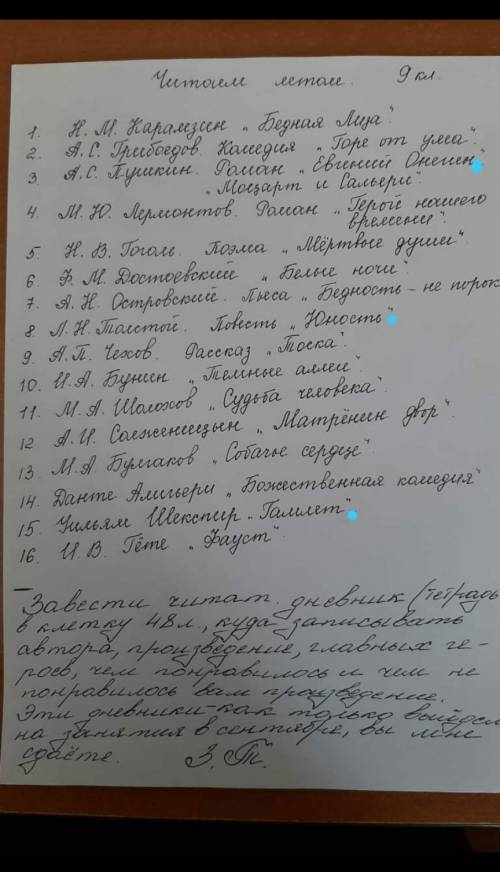 Читаем летом. 9 кл.
1. Н. М. Карамзин „Бедная Лиза".
2. А.С. Грибоедов. Комедия „Горе от ума".
3. А.С. Пушкин. Роман „Евгений Онегин"
„Моцарт и Сальери".
4. М. Ю. Лермонтов. Роман „Герой нашего
времени".
5. Н. В. Гоголь. Поэма „Мёртвые души".
6. Ф. М. Достоевский „Белые ночи".
7. А. Н. Островский. Пьеса „Бедность – не порок
8. Л. Н. Толстой. Повесть „Юность"
9. А. П. Чехов. Рассказ „Тоска".
10. И. А. Бунин „Темные аллеи".
11. М. А. Шолохов „Судьба человека".
12. А. И. Солженицын „Матрёнин двор".
13. М. А. Булгаков „Собачье сердце"
14. Данте Алигьери „Божественная комедия"
15. Уильям Шекспир „Гамлет"
16. И. В. Гёте „Фауст".
– Завести читат. дневник (тетрадь
в клетку 48 л., куда записывать
автора, произведение, главных ге-
роев, чем понравилось и чем не
понравилось вам произведение.
Эти дневники – как только выйдем
на занятия в сентябре, вы мне
сдаёте. З. Т.